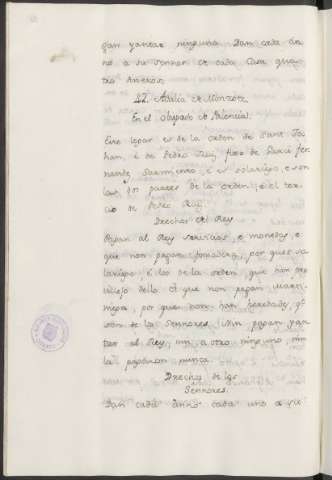 gan yantar ninguno. Dan cada an-
no a su sennor de cada casa qua-
tro dineros.
Adalia de
En el obispado de Palencia.
Este logar es de la orden de Sant Jo-
han, é de Pedro Ruiz, fijo de Garci fer-
nandez Sarmiento, é es solariego, e son
las dos partes de la orden, é el ter-
cio de Pedro Ruiz.
Derechos del Rey
Pagan al Rey servicios, e monedas, e
que non pagan fonsadera, por que es so-
lariego, é lo de la orden, que han pre-
villejo dello. E que non pagan marti-
niega, por que non han heredades, que
son de los Sennores. Nin pagan yan-
tar al Rey, nin a otro ninguno, nin
la pagaron nunca.
Derechos de los
Sennores.
Dan cada anno cada uno a su